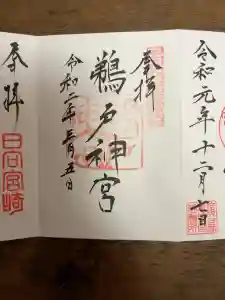 令和元年十二月七日
奉拝
鵜戸神宮
令和二年三月五日
奉拝